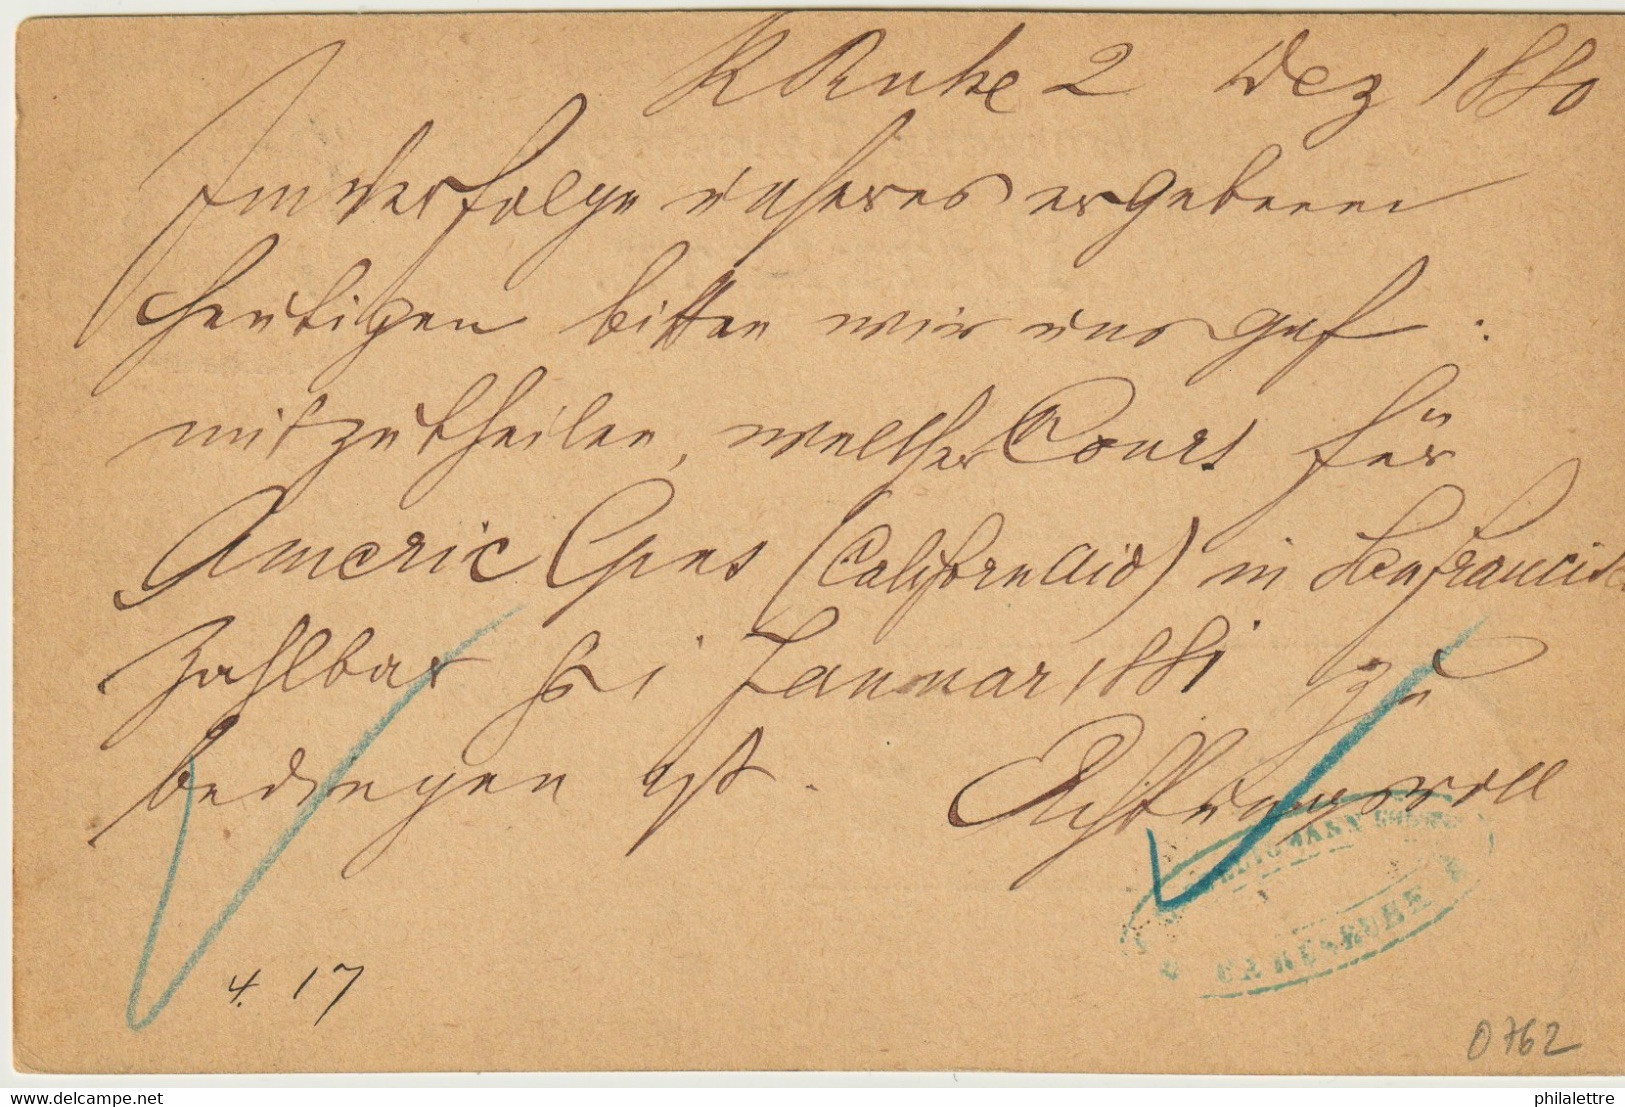 KRuhe 2 Dez 1880
In der Folge unseres ergebenen
heutigen bitten wir uns gef:
mitzutheilen, welcher Cours für
Americ Cpns (Californ Aid) in San Francisco
zahlbar p 1 Januar 1881 zu
bedingen ist. Achtungsvoll
CARLSRUHE
4. 17
0762
www.delcampe.net
philalettre